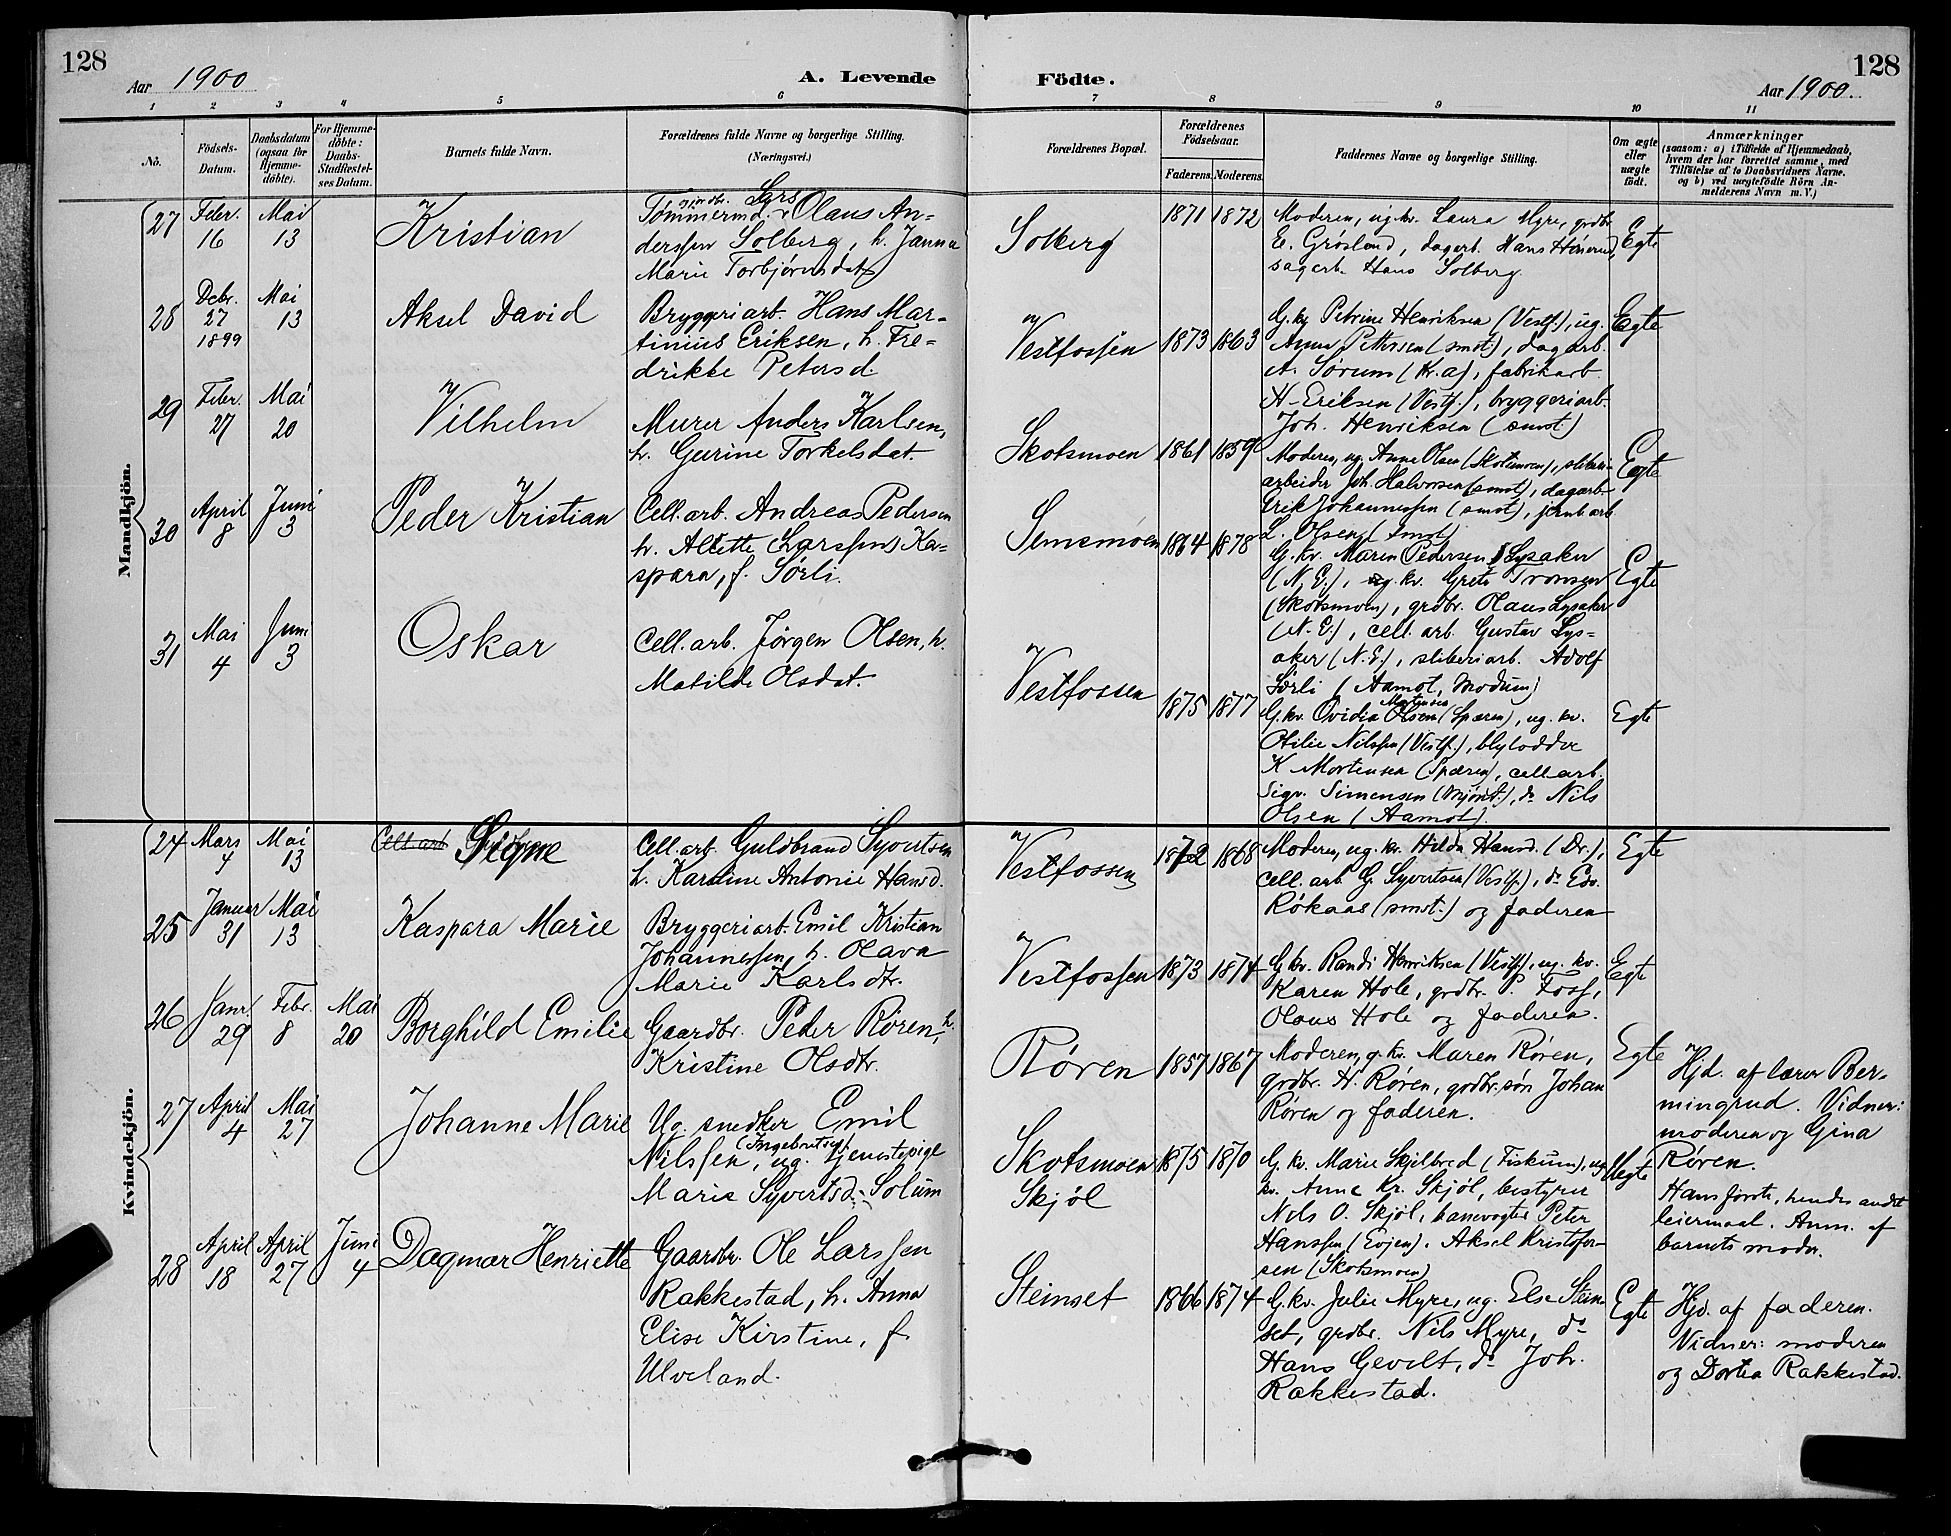 128
Aar 1900
A. Levende Födte.
Aar 1900.
128
1 2 3 4 5 6 7 8 9 10 11
No.
Födsels-
Datum.
Daabsdatum
(ogsaa for
Hjemme-
döbte).
For Hjemme-
döbte:
Daabs-
Stadfæstel-
ses Datum.
Barnets fulde Navn.
Forældrenes fulde Navne og borgerlige Stilling.
(Næringsvei.)
Forældrenes Bopæl.
Forældrenes
Födselsaar.
Faderens. Moderens.
Faddernes Navne og borgerlige Stilling.
Om ægte
eller
uægte
födt.
Anmærkninger
(saasom: a) i Tilfælde af Hjemmedaab,
hvem der har forrettet samme, med
Tilföielse af to Daabsvidners Navne.
og b) ved uægtefödte Börn An-
melderens Navn m. V.)
Mandkjön.
27
Febr.
16
Mai
13
Kristian
Tømmermd. Olaus An-
derssen Solberg, h. Janna
Marie Torbjørnsdat.
Solberg
1871 1872
Moderen, ug. kv. Laura Myre, grdbr.
E. Grøsland, dagarb. Hans Hønerud,
sagarb. Hans Solberg.
Egte
28
Debr.
27
1899
Mai
13
Aksel David
Bryggeriarb. Hans Mar-
tinius Eriksen, h. Fre-
drikke Petersd.
Vestfossen
1873 1863
G. kv. Petrine Henriksen (Vestf.), ug.
Anna Pettersen (smst.), dagarb.
A. Sørum (Kr.a), fabrikarb.
H. Eriksen (Vestf.), bryggeriarb.
Joh. Henriksen (smst.)
Egte
29
Febr.
27
Mai
20
Vilhelm
Murer Anders Karlsen,
h. Gurine Torkelsdat.
Skotsmoen
1861 1859
Moderen, ug. Anne Olsen (Skotsmoen), sliberi-
arbeider Joh. Halvorsen (smst.), dagarb.
Erik Johannessen (smst.), jernb.arb.
L. Olsen (smst.)
Egte
30
April
8
Juni
3
Peder Kristian
Cell. arb. Andreas Pedersen
h. Alette (Larssen) Ka-
spara, f. Sørli.
Semsmoen
1864 1878
G. kv. Maren Pedersen Lysaker
(N. E.), ug. kv. Grete Tronsen
(Skotsmoen), grdbr. Olaus Lysaker
(N. E.), cell. arb. Gustav Lys-
aker (N. E.), sliberiarb. Adolf
Sørli (Aamot, Modum)
Egte
31
Mai
4
Juni
3
Oskar
Cell. arb. Jørgen Olsen, h.
Matilde Olsdat.
Vestfossen
1875 1877
Mortensen
G. kv. Ovidia Olsen (Spæren), ug. kv.
Otilie Nilssen (Vestf.), blylodder
K Mortensen (Spæren), cell. arb.
Sigv. Simensen (Mjønd.), do Nils
Olsen (Aamot).
Egte
Kvindekjön.
24
Mars
4
Mai
13
Cell. arb Signe
Cell. arb. Guldbrand Syvertsen
h. Karoline Antonie Hansd.
Vestfossen
1872 1868
Moderen, ug. kv. Hilda Hansd. (Dr.),
cell. arb. G. Syvertsen (Vestf.), do Edv.
Røkaas (smst.) og faderen
Egte
25
Januar
31
Mai
13
Kaspara Marie
Bryggeriarb. Emil Kristian
Johannessen, h. Olava
Marie Karlsdtr.
Vestfossen
1873 1874
G. kv. Randi Henriksen (Vestf.), ug. kv.
Karen Hole, grdbr. P. Foss,
Olaus Hole og faderen.
Egte
26
Janr.
29
Febr.
8
Mai
20
Borghild Emilie
Gaardbr. Peder Røren, h.
Kristine Olsdtr.
Røren
1857 1867
Moderen, g. kv. Maren Røren,
grdbr. H. Røren, grdbr.søn Johan
Røren og faderen.
Egte
Hjd. af lærer Ber-
mingrud. Vidner:
moderen og Gina
Røren.
27
April
4
Mai
27
Johanne Marie
Ug. snedker Emil
Nilssen (Ingebretsen), ug. tjenestepige
Marie Syvertsd. Solum
Skotsmoen
Skjøl
1875 1870
G. kv. Marie Skjelbred (Fiskum), ug.
kv. Anne Kr. Skjøl, bestyrer
Nils O. Skjøl, banevogter Peter
Hanssen (Evjen). Aksel Kristofer-
sen (Skotsmoen)
Uegte
Hans første, hendes andet
leiermaal. Anm. af
barnets moder.
28
April
18
April
27
Juni
4
Dagmar Henriette
Gaardbr. Ole Larssen
Rakkestad, h. Anna
Elise Kirstine, f.
Ulveland.
Steinset
1866 1874
G. kv. Julie Myre, ug. Else Stein-
set, grdbr. Nils Myre, do
Hans Gevelt, do Joh.
Rakkestad.
Egte
Hjd. af faderen.
Vidner: moderen
og Dortea Rakkestad.